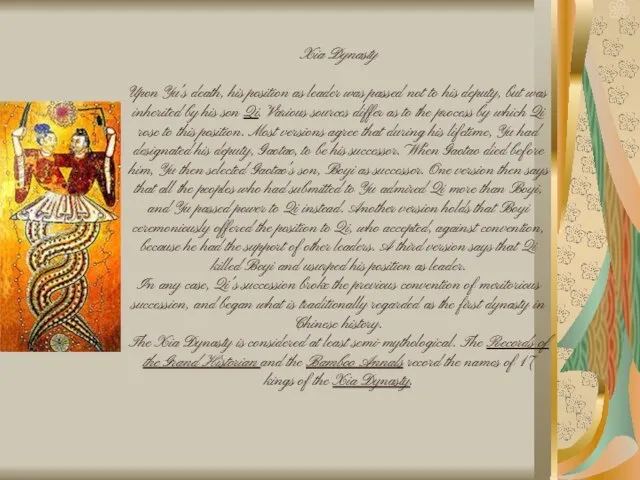 Xia Dynasty
Upon Yu's death, his position as leader was passed not to his deputy, but was
inherited by his son Qi. Various sources differ as to the process by which Qi
rose to this position. Most versions agree that during his lifetime, Yu had
designated his deputy, Gaotao, to be his successor. When Gaotao died before
him, Yu then selected Gaotao's son, Boyi as successor. One version then says
that all the peoples who had submitted to Yu admired Qi more than Boyi,
and Yu passed power to Qi instead. Another version holds that Boyi
ceremoniously offered the position to Qi, who accepted, against convention,
because he had the support of other leaders. A third version says that Qi
killed Boyi and usurped his position as leader.
In any case, Qi's succession broke the previous convention of meritorious
succession, and began what is traditionally regarded as the first dynasty in
Chinese history.
The Xia Dynasty is considered at least semi-mythological. The Records of
the Grand Historian and the Bamboo Annals record the names of 17
kings of the Xia Dynasty.